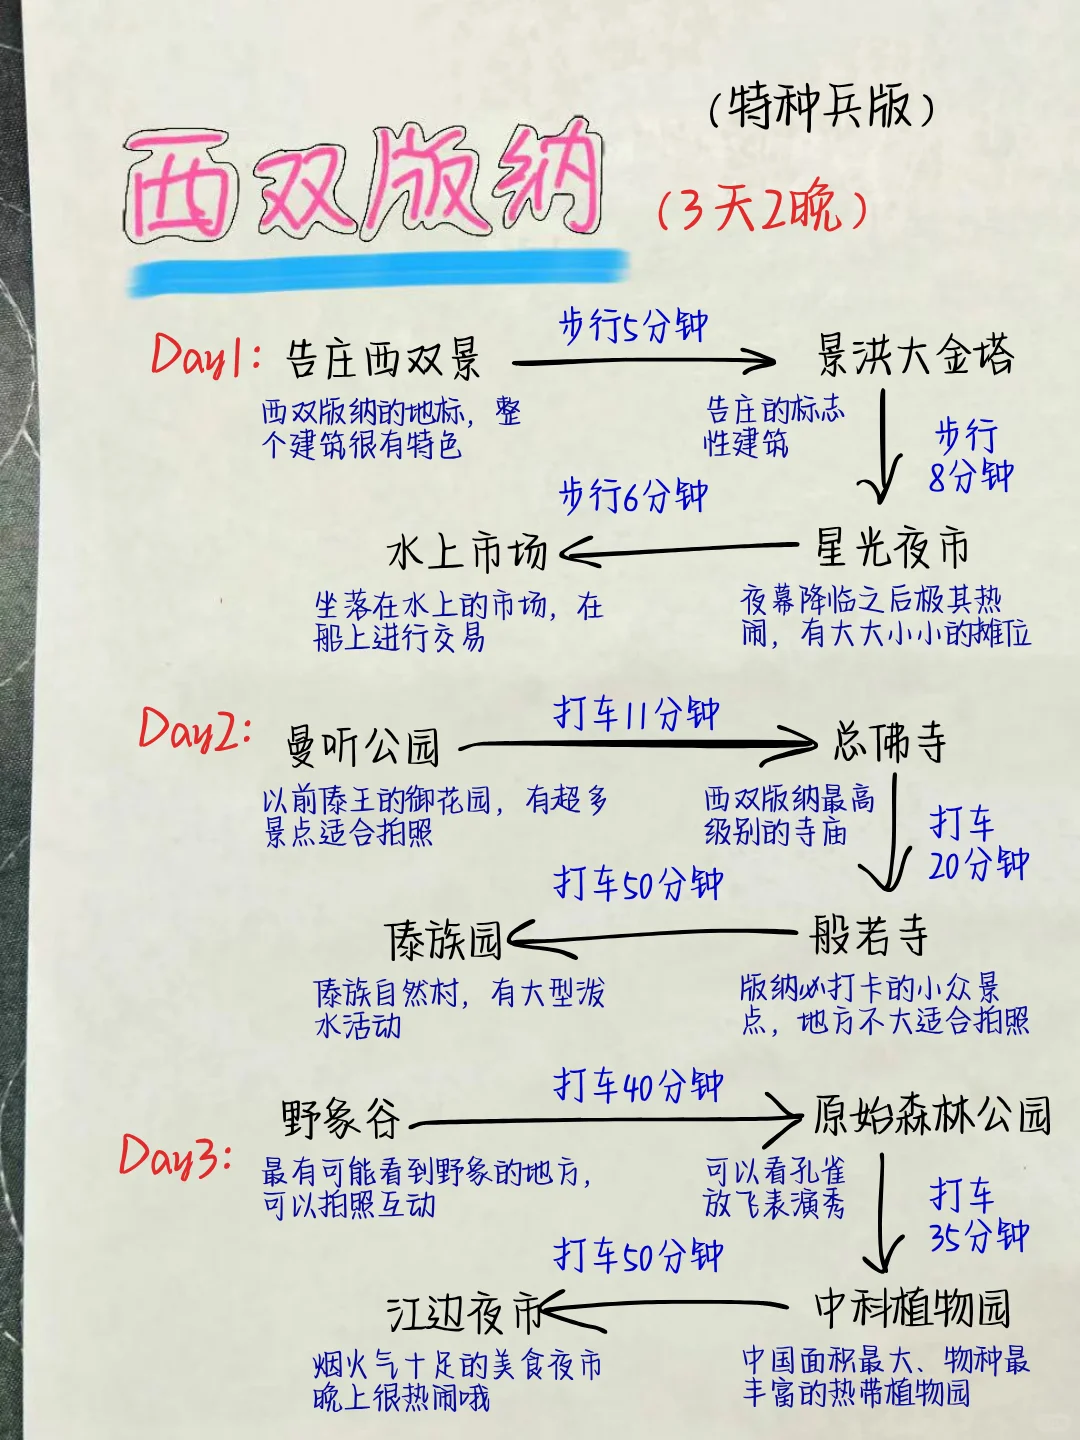 （特种兵版）
西双版纳
（3天2晚）
Day1:
告庄西双景
步行5分钟
景洪大金塔
西双版纳的地标，整
个建筑很有特色
告庄的标志
性建筑
步行
8分钟
步行6分钟
水上市场
星光夜市
坐落在水上的市场，在
船上进行交易
夜幕降临之后极其热
闹，有大大小小的摊位
Day2:
曼听公园
打车11分钟
总佛寺
以前傣王的御花园，有超多
景点适合拍照
西双版纳最高
级别的寺庙
打车
20分钟
打车50分钟
傣族园
般若寺
傣族自然村，有大型泼
水活动
版纳必打卡的小众景
点，地方不大适合拍照
Day3:
野象谷
打车40分钟
原始森林公园
最有可能看到野象的地方，
可以拍照互动
可以看孔雀
放飞表演秀
打车
35分钟
打车50分钟
江边夜市
中科植物园
烟火气十足的美食夜市
晚上很热闹哦
中国面积最大、物种最
丰富的热带植物园